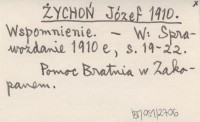 ŻYCHOŃ Józef 1910.
Wspomnienie. — W: Spra-
wozdanie 1910 r, s. 19-22.
Pomoc Bratnia w Zako-
panem.